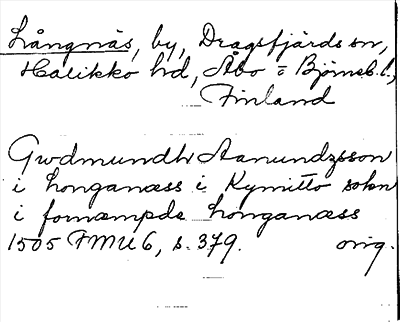 Långnäs, by, Dragsfjärds sn,
Halikko hd, Åbo o Björneb. l.,
Finland
Gwdmundh Aanundzsson
i honganæss i Kymitto sokn
i fornæmpde honganæss
1505 FMU 6, s. 379. orig.